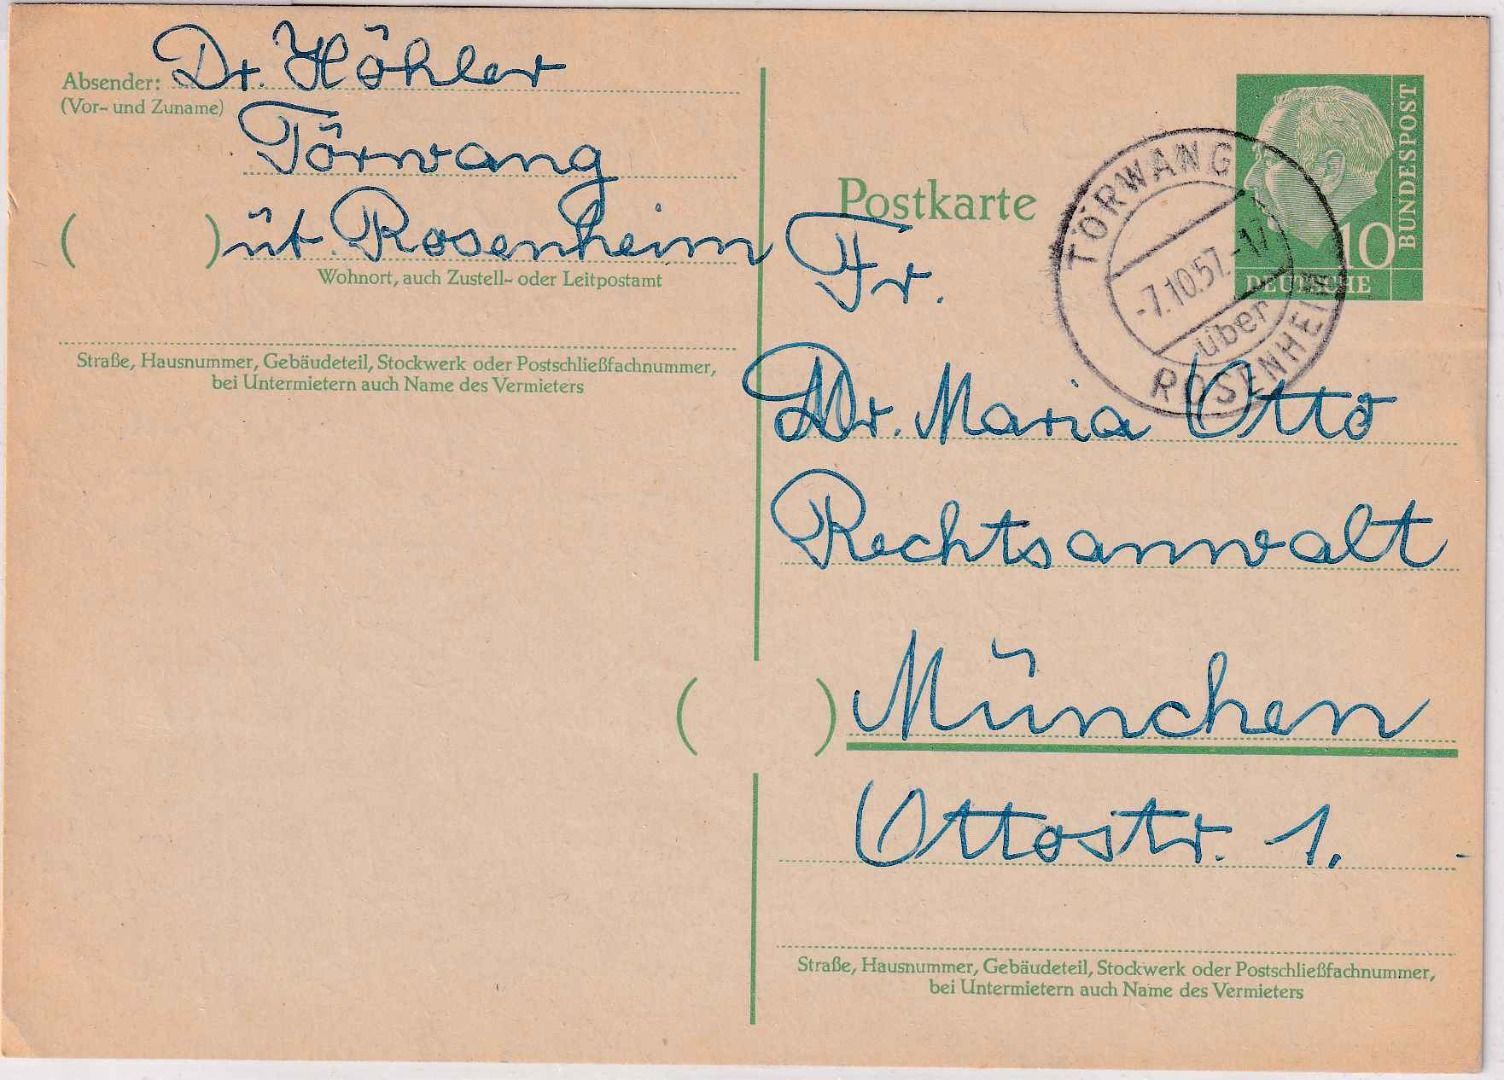 Absender: Dr. Höhler
(Vor- und Zuname)
Törwang
( ) üb. Rosenheim
Wohnort, auch Zustell- oder Leitpostamt
Straße, Hausnummer, Gebäudeteil, Stockwerk oder Postschließfachnummer,
bei Untermietern auch Name des Vermieters
Postkarte
BUNDESPOST
10
DEUTSCHE
TÖRWANG
-7.10.57.-17
über
ROSENHEIM
Fr.
Dr. Maria Otto
Rechtsanwalt
( ) München
Ottostr. 1.
Straße, Hausnummer, Gebäudeteil, Stockwerk oder Postschließfachnummer,
bei Untermietern auch Name des Vermieters